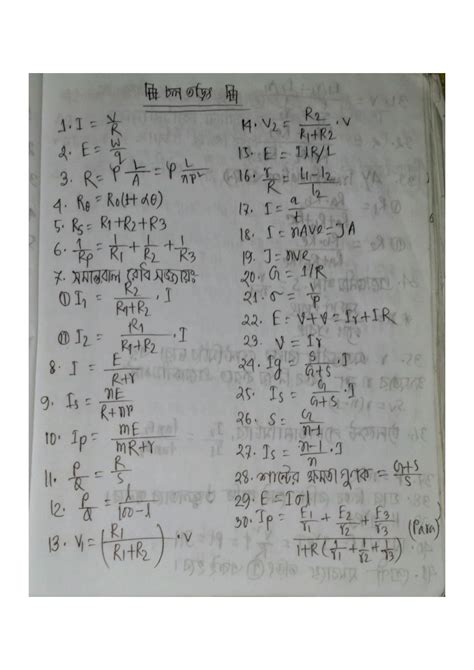 চল তড়িৎ
1. I = V/R
2. E = W/q
3. R = ρ L/A = ρ L/πr²
4. Rθ = R₀(1+αθ)
5. Rs = R1+R2+R3
6. 1/Rp = 1/R1 + 1/R2 + 1/R3
7. সমান্তরাল
① I₁ = R₂/(R₁+R₂) · I
② I₂ = R₁/(R₁+R₂) · I
8. I = E/(R+r)
9. Is = nE/(R+nr)
10. Ip = mE/(mR+r)
11. P/Q = R/S
12. P/Q = l/(100-l)
13. V₁ = (R₁/(R₁+R₂)) · V
14. V₂ = R₂/(R₁+R₂) · V
15.
16.
17. I =
18. I = nAve = JA
19. J = nve
20. G = 1/R
21. σ = 1/ρ
22. E = V+v = Ir+IR
23. V = Ir
24. Ig = S/(G+S) · I
25. Is = G/(G+S) · I
26. S = G/(n-1)
27. Is = (n-1)/n · I
28. শান্টের ক্ষমতা গুণক = (G+S)/S
29.
30. Ip = (E1/r1 + E2/r2 + E3/r3)/(1+R(1/r1 + 1/r2 + 1/r3)) (Para)